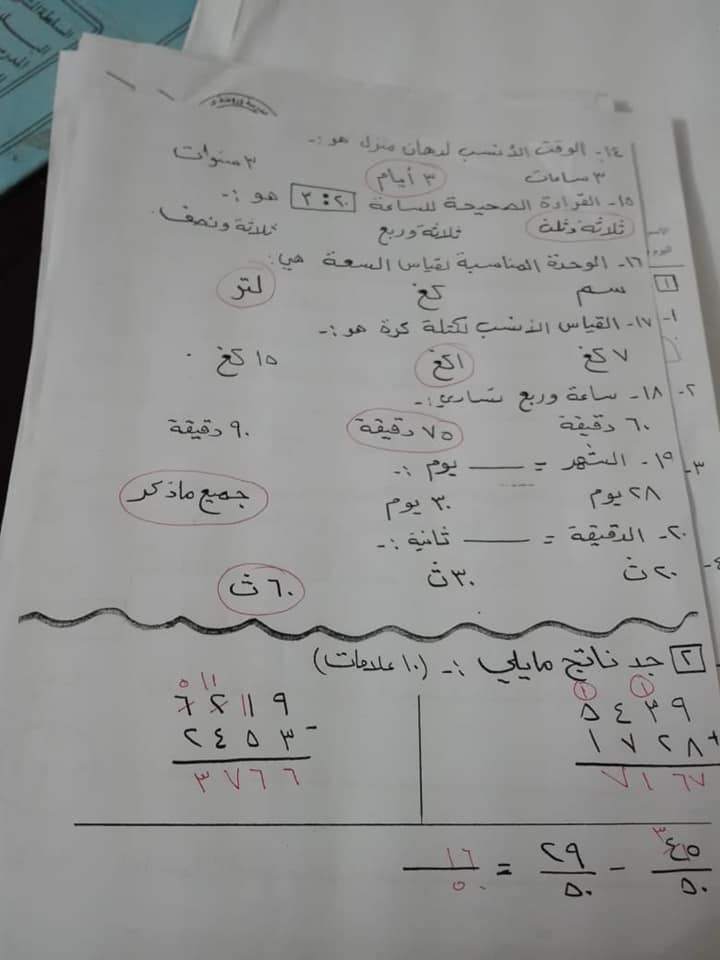 ١٤- الوقت الأنسب لدهان منزل هو :-
٣ ساعات ٣ أيام ٣ سنوات
١٥- القراءة الصحيحة للساعة ٣:٢٠ هو :-
ثلاثة وثلث ثلاثة وربع ثلاثة ونصف
١٦- الوحدة المناسبة لقياس السعة هي:
سم كغ لتر
١٧- القياس الأنسب لكتلة كرة هو :-
٧ كغ ١ كغ ١٥ كغ
١٨- ساعة وربع تساوي :-
٦٠ دقيقة ٧٥ دقيقة ٩٠ دقيقة
١٩- الشهر = ــــ يوم :-
٢٨ يوم ٣٠ يوم جميع ماذكر
٢٠- الدقيقة = ــــ ثانية :-
٢٠ ث ٣٠ ث ٦٠ ث
٢ جد ناتج مايلي :- (١٠ علامات)
١ ١
٥٤٣٩
١٧٢٨ +
٧١٦٧
٥ ١١
٦٢١٩
٢٤٥٣ -
٣٧٦٦
٤٥/٥٠ - ٢٩/٥٠ = ١٦/٥٠